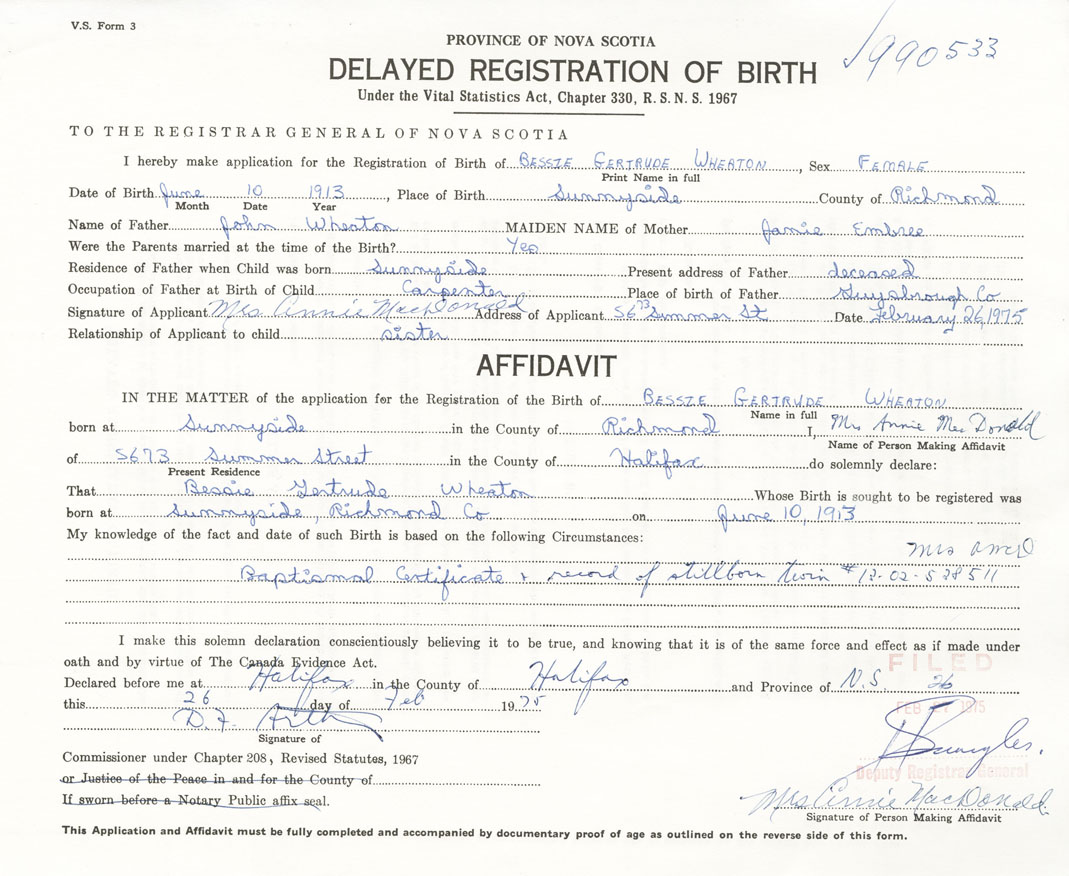 V.S. Form 3
990533
PROVINCE OF NOVA SCOTIA
DELAYED REGISTRATION OF BIRTH
Under the Vital Statistics Act, Chapter 330, R. S. N. S. 1967
TO THE REGISTRAR GENERAL OF NOVA SCOTIA
I hereby make application for the Registration of Birth of BESSIE GERTRUDE WHEATON, Sex FEMALE
Print Name in full
Date of Birth June 10 1913, Place of Birth Sunnyside County of Richmond
Month Date Year
Name of Father John Wheaton MAIDEN NAME of Mother Jamie Embree
Were the Parents married at the time of the Birth? Yes
Residence of Father when Child was born Sunnyside Present address of Father deceased
Occupation of Father at Birth of Child Carpenter Place of birth of Father Guysbrough Co
Signature of Applicant Mrs. Annie MacDonald Address of Applicant 5673 Summer St Date February 26, 1975
Relationship of Applicant to child sister
AFFIDAVIT
IN THE MATTER of the application for the Registration of the Birth of BESSIE GERTRUDE WHEATON
Name in full
born at Sunnyside in the County of Richmond I, Mrs Annie MacDonald
Name of Person Making Affidavit
of 5673 Summer Street in the County of Halifax do solemnly declare:
Present Residence
That Bessie Gertrude Wheaton Whose Birth is sought to be registered was
born at Sunnyside, Richmond Co on June 10, 1913
My knowledge of the fact and date of such Birth is based on the following Circumstances:
Mrs
Baptismal Certificate + record of stillborn twin # 13-02-538511
I make this solemn declaration conscientiously believing it to be true, and knowing that it is of the same force and effect as if made under
oath and by virtue of The Canada Evidence Act.
FILED
Declared before me at Halifax in the County of Halifax and Province of N.S.
26
this 26 day of Feb 1975
FEB 1975
D.F.
Signature of
Commissioner under Chapter 208, Revised Statutes, 1967
or Justice of the Peace in and for the County of
Deputy Registrar General
If sworn before a Notary Public affix seal.
Mrs Annie MacDonald
Signature of Person Making Affidavit
This Application and Affidavit must be fully completed and accompanied by documentary proof of age as outlined on the reverse side of this form.